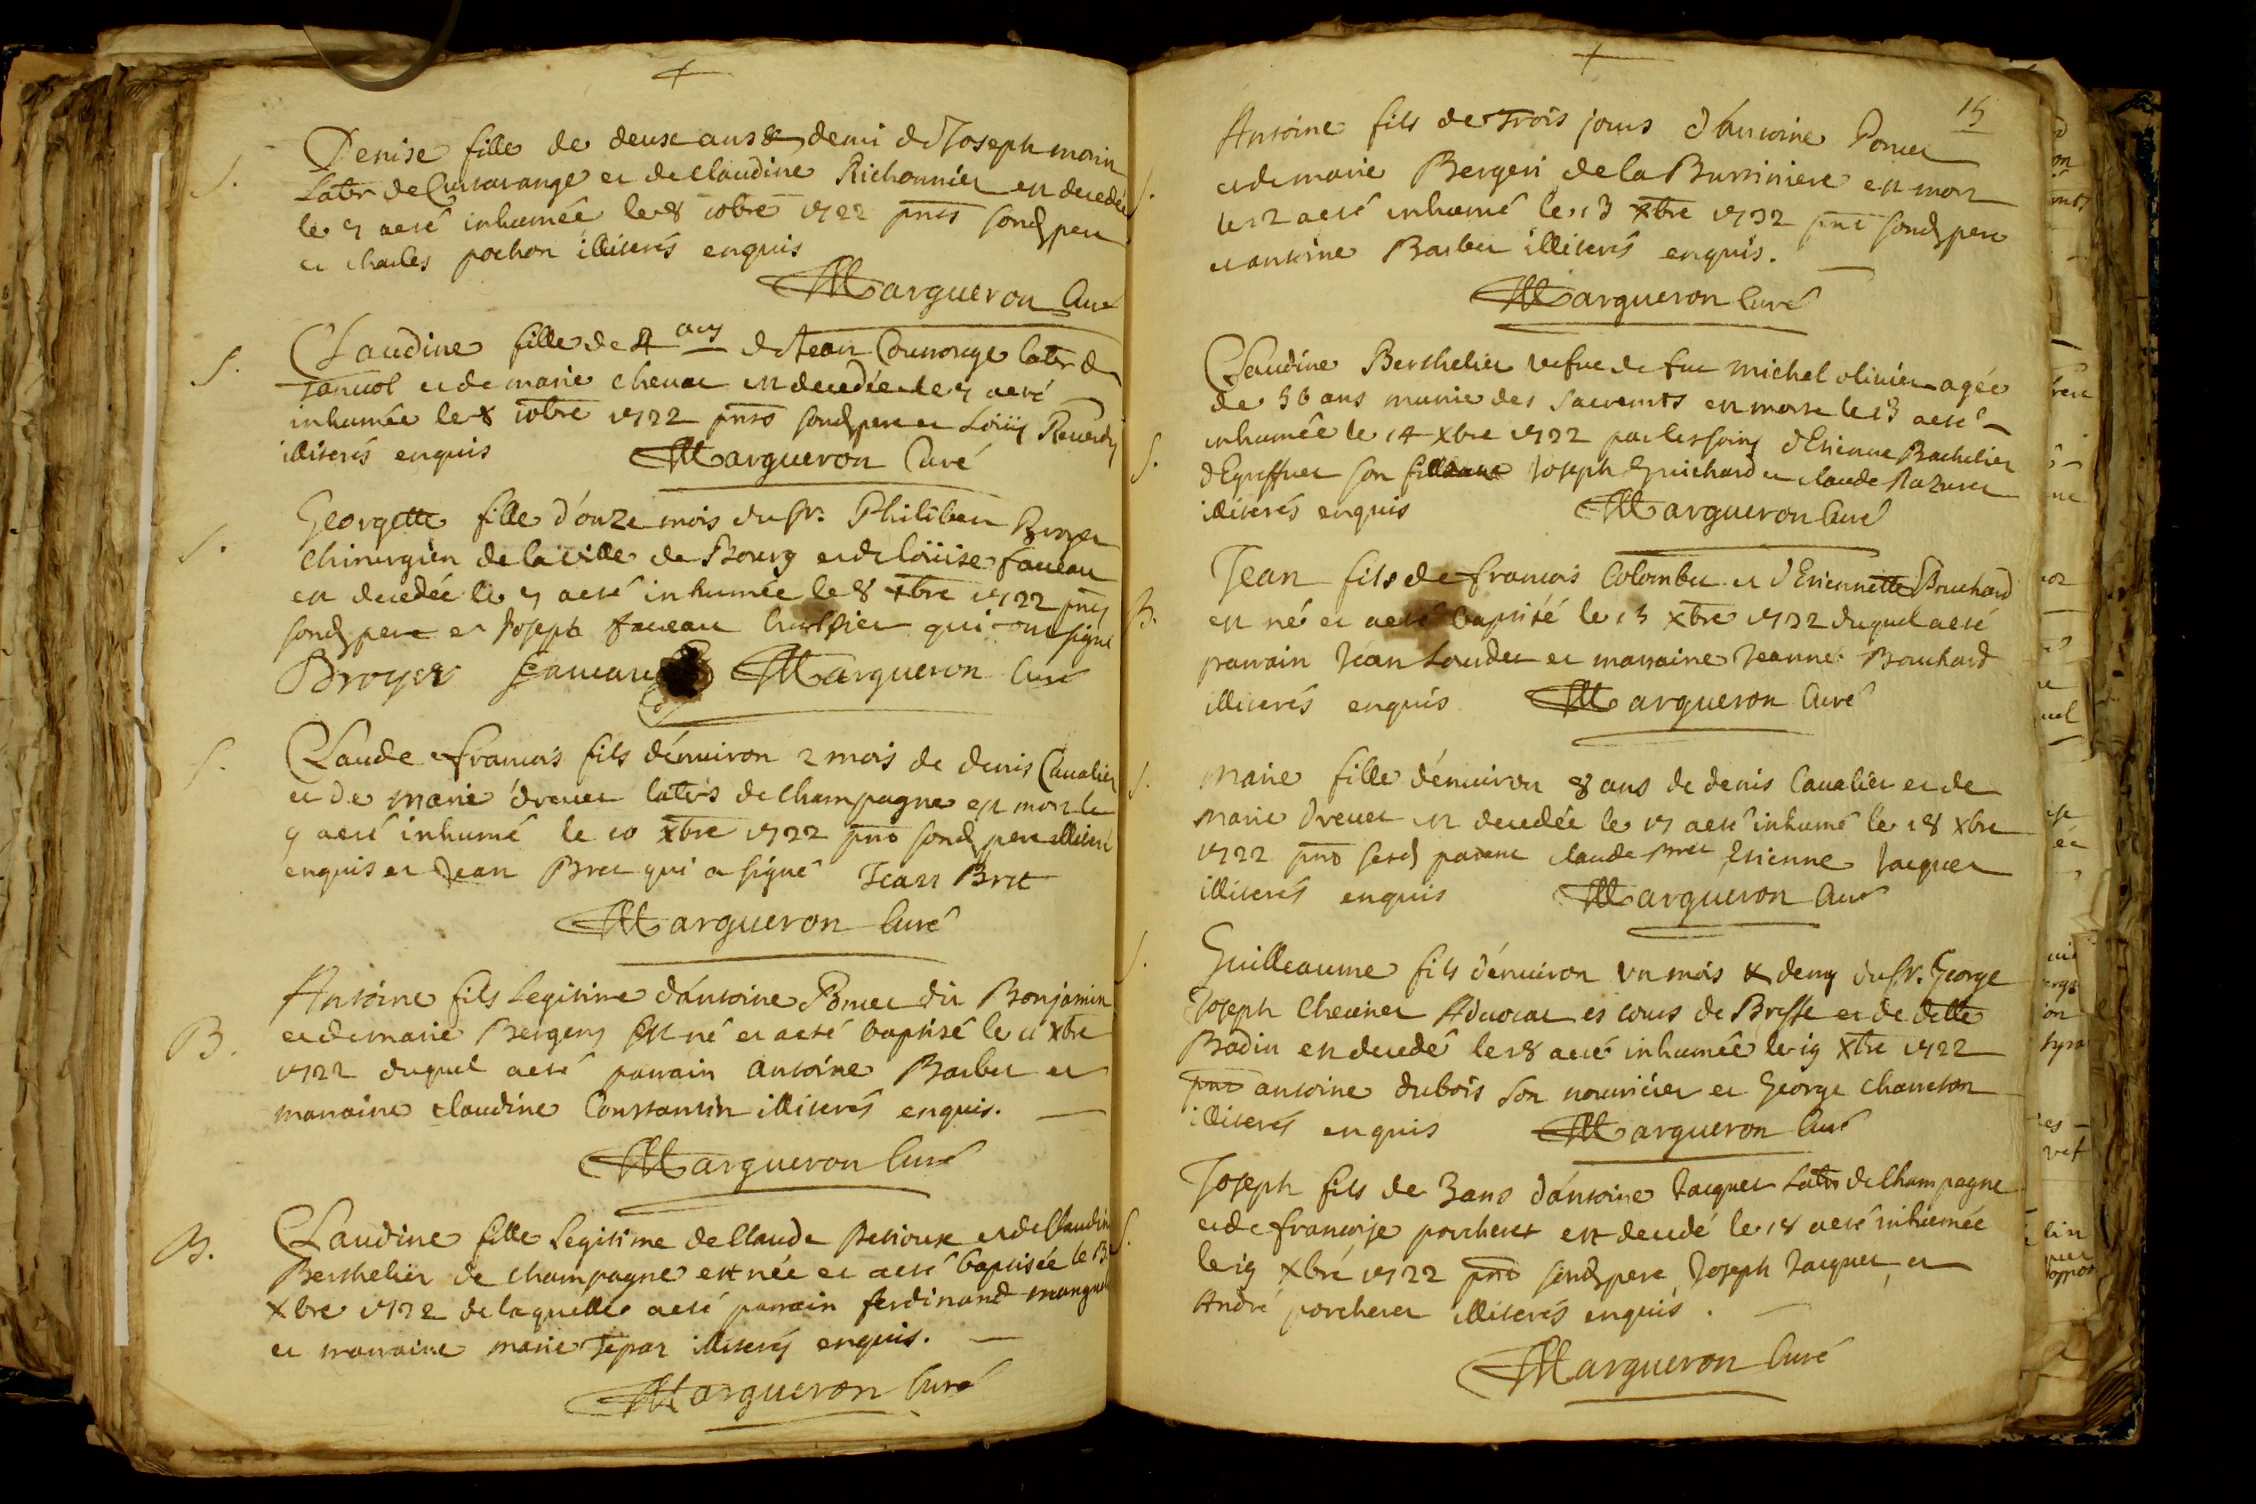 S. Denise fille de deux ans & demi de Joseph morin
Labr de et de Claudine Richonnier est decedée
le 7 a eté inhumée le 8 xbre 1722 pnts sond pere
et charles pochon illiterés enquis
Margueron Curé
S. Claudine fille de 4 ans de Jean labr de
et de marie chevat est decedée le 7 a eté
inhumée le 8 xbre 1722 pnts sond pere et Loüis
illiterés enquis Margueron Curé
S. Georgette fille d'onze mois du Sr. Philibert Broyer
chirurgien de la ville de Bourg et de loüise faveau
est decedée le 7 a eté inhumée le 8 xbre 1722 pnts
sond pere et Joseph faveau huissier qui ont signé
Broyer faveau Margueron Curé
S. Claude francois fils d'environ 2 mois de denis Cavalier
et de marie drevet labrs de Champagne est mort le
9 a eté inhumé le 10 xbre 1722 pnts sond pere illiteré
enquis et Jean Bret qui a signé Jean Bret
Margueron Curé
B. Antoine fils legitime d'antoine Poncet dit Bonjamin
et de marie Bergery est né et a eté baptisé le 11 xbre
1722 duquel a eté parrain antoine Barbet et
marraine claudine Constantin illiterés enquis.
Margueron Curé
B. Claudine fille legitime de Claude et de Claudine
Berthelier de champagne est née et a eté baptisée le 13
xbre 1722 de laquelle a eté parrain ferdinand
et marraine marie illiterés enquis.
Margueron Curé
15
S. Antoine fils de trois jours d'Antoine Poncet
et de marie Bergeri de la est mort
le 12 a eté inhumé le 13 xbre 1722 pnt sond pere
et antoine Barbet illiterés enquis.
Margueron Curé
Claudine Berthelier vefue de feu michel olivier agée
de 56 ans munie des sacremts est morte le 13 a eté
S. inhumée le 14 xbre 1722 par les soins d'Etienne Bachelier
son Joseph Guichard et claude
illiterés enquis Margueron Curé
Jean fils de francois Colombet et d'Etiennette Bouchard
B. est né et a eté baptisé le 13 xbre 1722 duquel a eté
parrain Jean et marraine Jeanne Bouchard
illiterés enquis Margueron Curé
S. Marie fille d'environ 8 ans de denis Cavalier et de
marie drevet est decedée le 17 a eté inhumé le 18 xbre
1722 pnts sesd parent claude Bret Etienne Jacquet
illiterés enquis Margueron Curé
S. Guilleaume fils d'environ un mois & demy du Sr. George
Joseph Chevrier Advocat es cours de Bresse et de delle
Bodin est decedé le 18 a eté inhumée le 19 xbre 1722
pnts antoine dubois son nourricier et George
illiterés enquis Margueron Curé
Joseph fils de 3 ans d'antoine Jacquet Labr de Champagne
S. et de francoise porcheret est decedé le 18 a eté inhumée
le 19 xbre 1722 pnts sond pere Joseph Jacquet, et
André porcheret illiterés enquis.
Margueron Curé